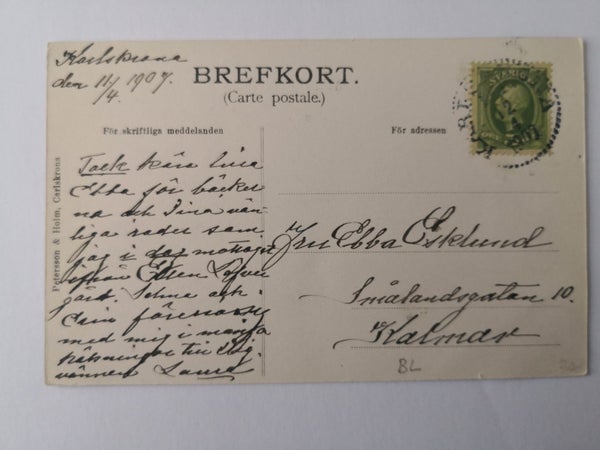 Karlskrona
den 11/4. 1907.
BREFKORT.
(Carte postale.)
SVERIGE
För skriftliga meddelanden
För adressen
Tack kära lina
Ebba för böcker
na och Dina vän-
liga rader som
jag i dag mottagit
från Ellen
Selma och
förenar
med mig i många
hälsningar till dig.
vännen Laura
Fru Ebba Esklund
Smålandsgatan 10.
Kalmar
BL
Petersson & Holm, Carlskrona